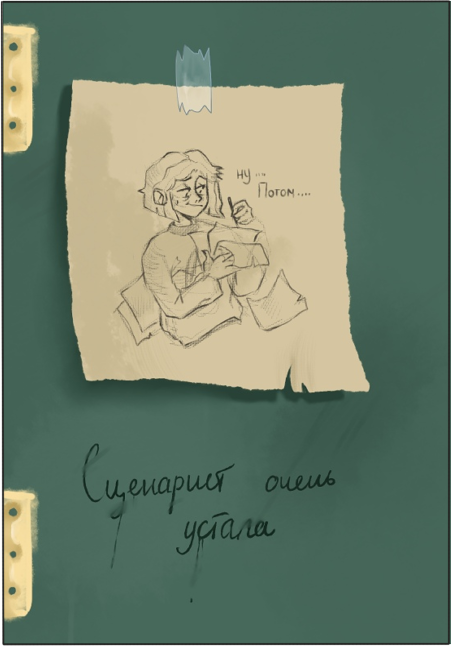 ну....
Потом....
Сценарист очень
устала